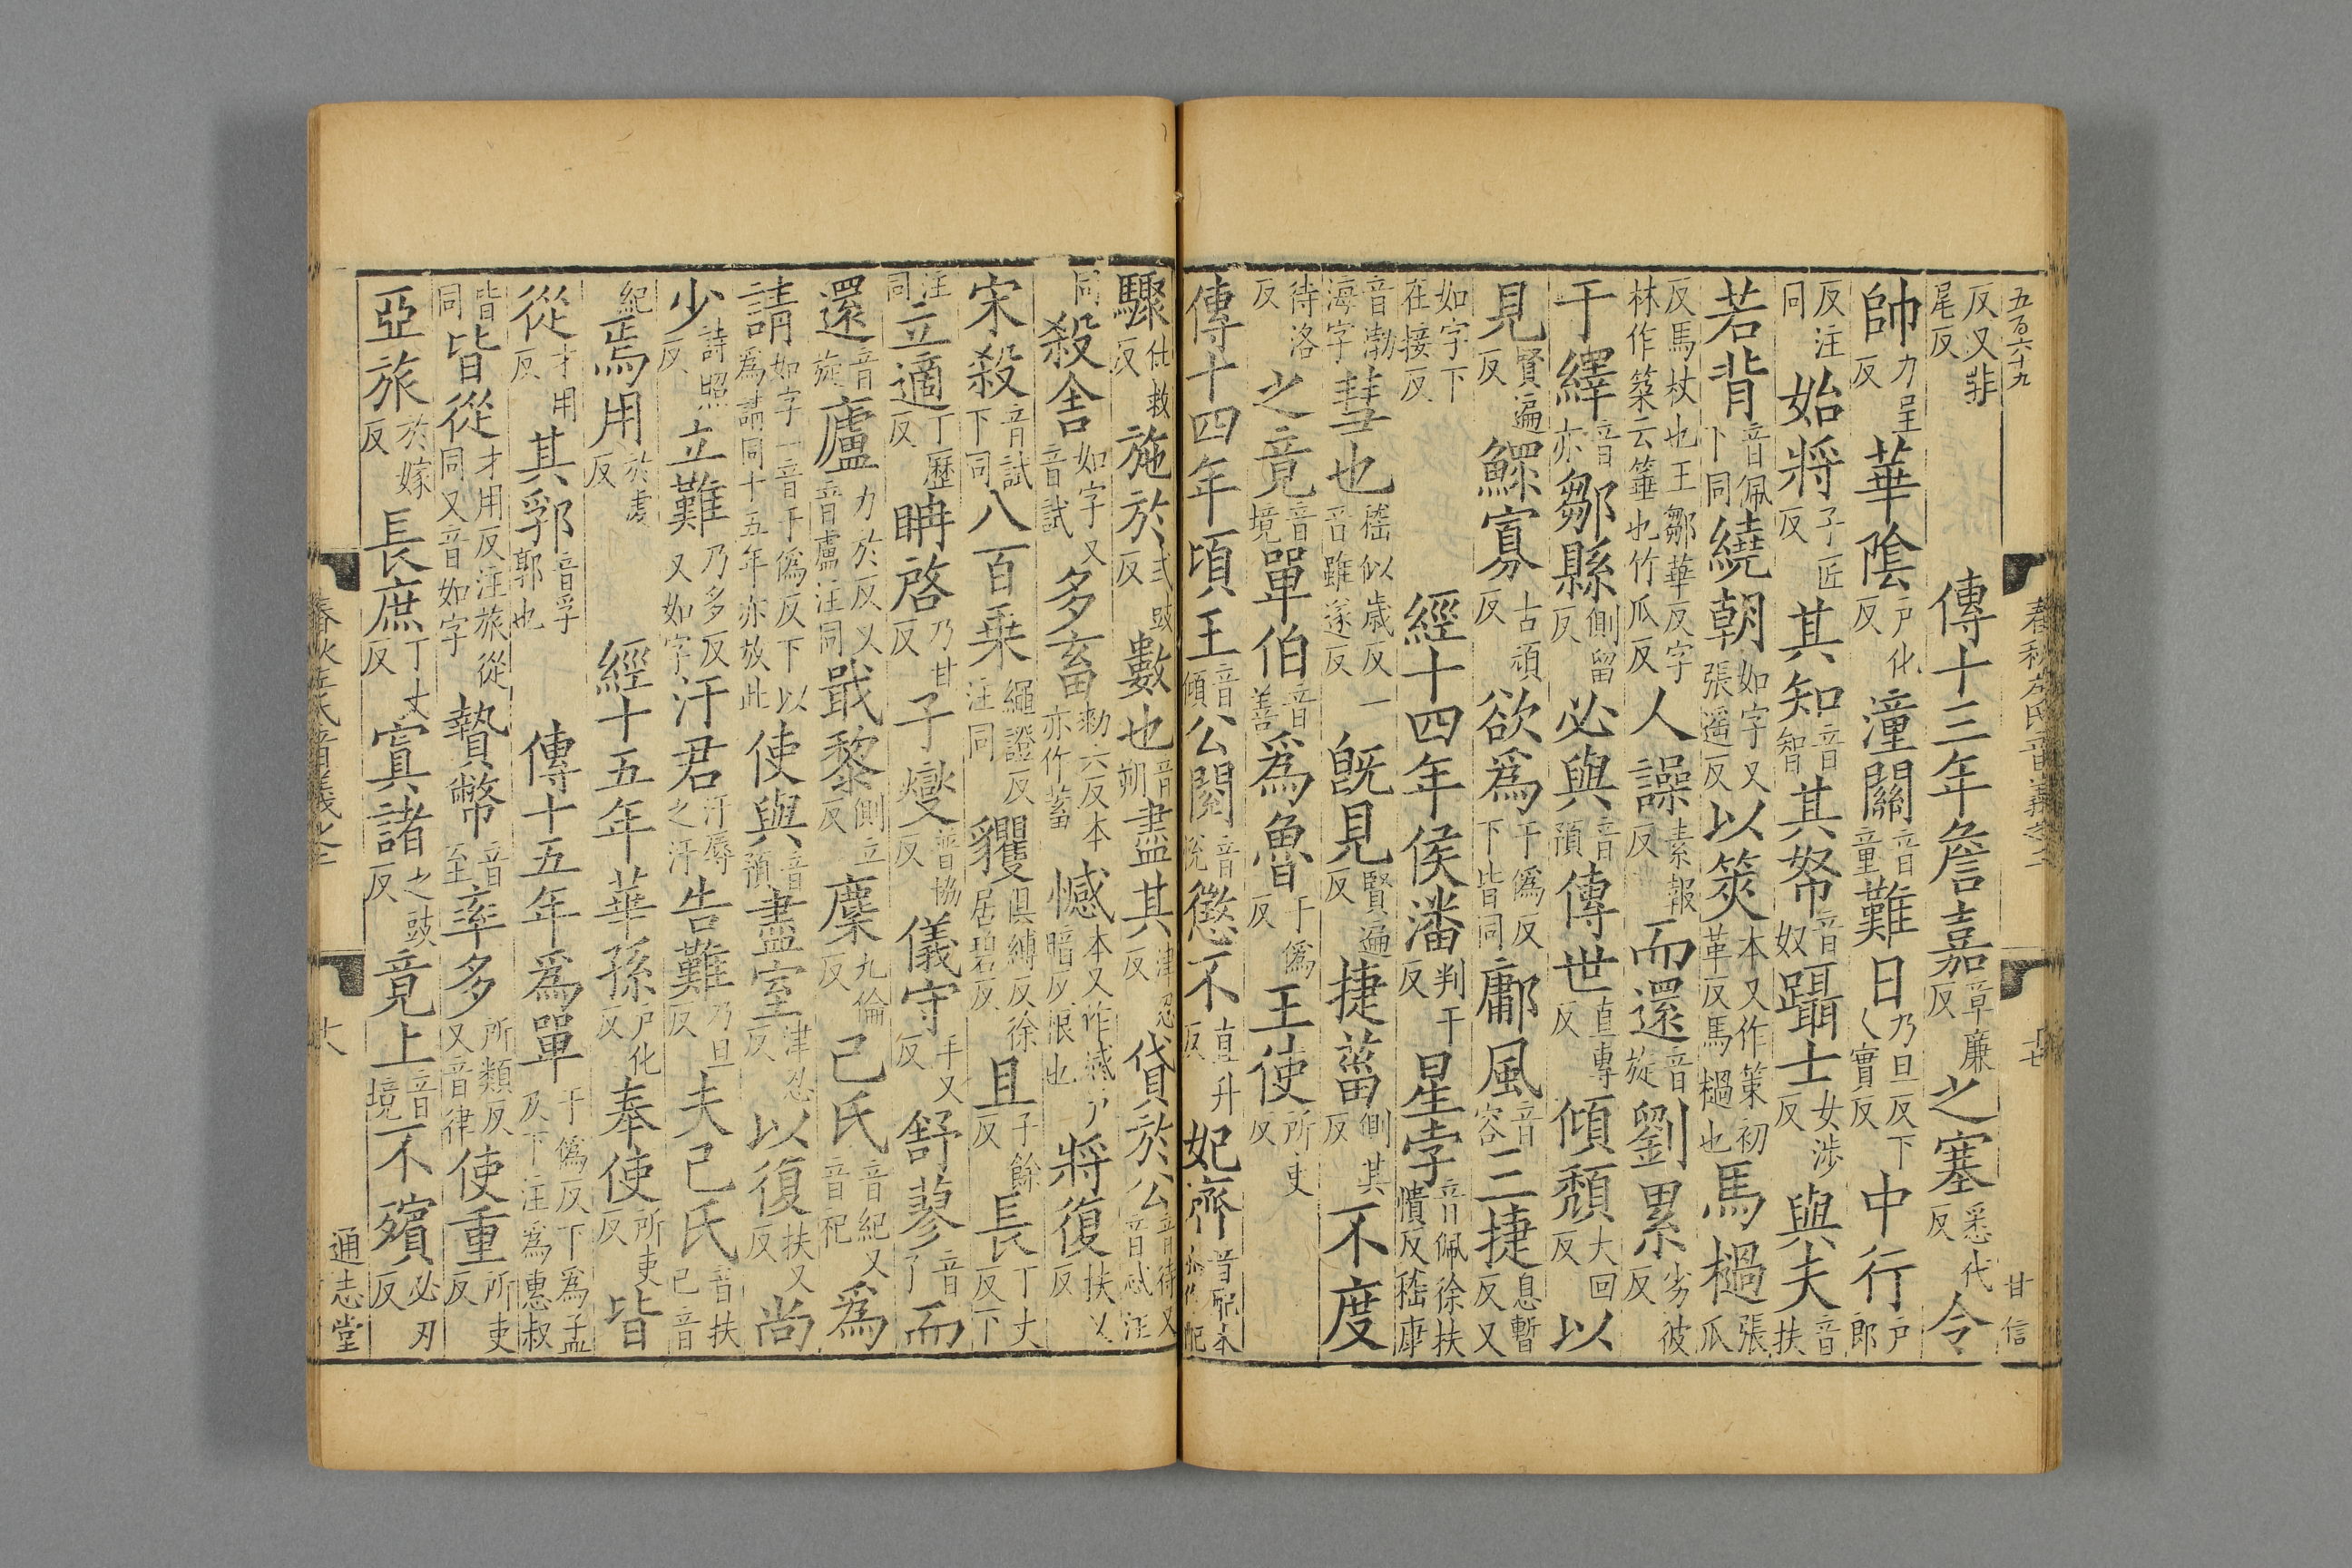 五百六十九
春秋左氏音義之二
十七
甘信
反又非尾反　傳十三年詹嘉章廉反之塞悉代反令
帥力呈反華陰戶化反潼關音童難日乃旦反下人實反中行戶郎
反注同始將子匠反其知音智其帑音奴躡士女涉反與夫音扶
若背音佩下同繞朝如字又張遥反以筴本又作策初革反馬檛也馬檛張瓜
反馬杖也王鄒華反字林作築云箠也竹瓜反人譟素報反而還音旋劉累劣彼反
于繹音亦鄒縣側留反必與音預傳世直專反傾頹大回反以
見賢遍反鰥寡古頑反欲爲于僞反下皆同鄘風音容三捷息暫反又
如字下在接反　經十四年侯潘判干反星孛音佩徐扶憒反嵇康
音渤海字彗也嵇似歳反一音雖遂反旣見賢遍反捷菑側其反不度
待洛反之竟音境單伯音善爲魯于僞反王使所吏反
傳十四年頃王音傾公閱音悅懲不直升反妃齊音配本
驟仕救反施於式豉反數也音朔盡其津忍反貸於公音待又音忒注
同殺舍如字又音試多畜勑六反本亦作蓄憾本又作感戶暗反恨也將復扶又反
宋殺音試下同八百乗繩證反注同貜俱縛反徐居碧反且子餘反長丁丈反下
注同立適丁歷反聃啓乃甘反子燮普協反儀守手又反舒蓼音了而
還音旋廬力於反又音盧注同戢黎側立反麇九倫反己氏音紀又音祀爲
請如字一音于僞反下以爲請同十五年亦放此使與音預盡室津忍反以復扶又反尚
少詩照反立難乃多反又如字汙君汙辱之汙告難乃旦反夫己氏音扶己音
紀焉用於虔反　經十五年華孫戶化反奉使所吏反皆
從才用反其郛音孚郭也　傳十五年爲單于僞反下爲孟及下注爲惠叔
皆同皆從才用反注旅從同又音如字贄幣音至率多所類反又音律使重所吏反
亞旅於嫁反長庶丁丈反寘諸之豉反竟上音境不殯必刃反
春秋左氏音義之二
十八
通志堂